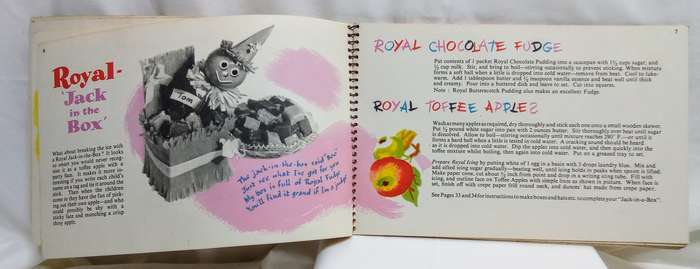 6
Royal-
'Jack
in the
Box'
What about breaking the ice with
a Royal Jack-in-the-Box? It looks
so smart you would never recog-
nise it as a toffee apple with a
party face. It makes it more in-
teresting if you write each child's
name on a tag and tie it around the
stick. Then when the children
come in they have the fun of pick-
ing out their own apple—and who
could possibly be shy with a
sticky face and munching a crisp
apple.
Tom
The Jack-in-the-box said "Boo"
Just see what I've got for you
My box is full of Royal Fudge
You'll find it grand if I'm a judge
7
ROYAL CHOCOLATE FUDGE
Put contents of 1 packet Royal Chocolate Pudding into a saucepan with 1½ cups sugar, and
½ cup milk. Stir, and bring to boil—stirring occasionally to prevent sticking. When mixture
forms a soft ball when a little is dropped into cold water—remove from heat. Cool to luke-
warm. Add 1 tablespoon butter and ½ teaspoon vanilla essence and beat well until thick
and creamy. Pour into a buttered dish and leave to set. Cut into squares.
Note: Royal Butterscotch Pudding also makes an excellent Fudge.
ROYAL TOFFEE APPLES
Wash as many apples as required, dry thoroughly and stick each one onto a small wooden skewer.
Put ½ pound white sugar into pan with 2 ounces butter. Stir thoroughly over heat until sugar
is dissolved. Allow to boil—stirring occasionally until mixture reaches 290° F.—or until it
forms a hard ball when a little is tested in cold water. A cracking sound should be heard
as it is dropped into cold water. Dip the apples into cold water, and then quickly into the
toffee mixture whilst boiling, then again into cold water. Put on a greased tray to set.
Prepare Royal Icing by putting white of 1 egg in a basin with 3 drops laundry blue. Mix and
add sifted icing sugar gradually—beating well, until icing holds in peaks when spoon is lifted.
Make paper cone, cut about ½ inch from point and drop in a writing icing tube. Fill with
icing, and outline face on Toffee Apples with simple face as shown in picture. When face is
set, finish off with crepe paper frill round neck, and dunces' hat made from crepe paper.
See Pages 33 and 34 for instructions to make boxes and hats etc. to complete your "Jack-in-a-Box".